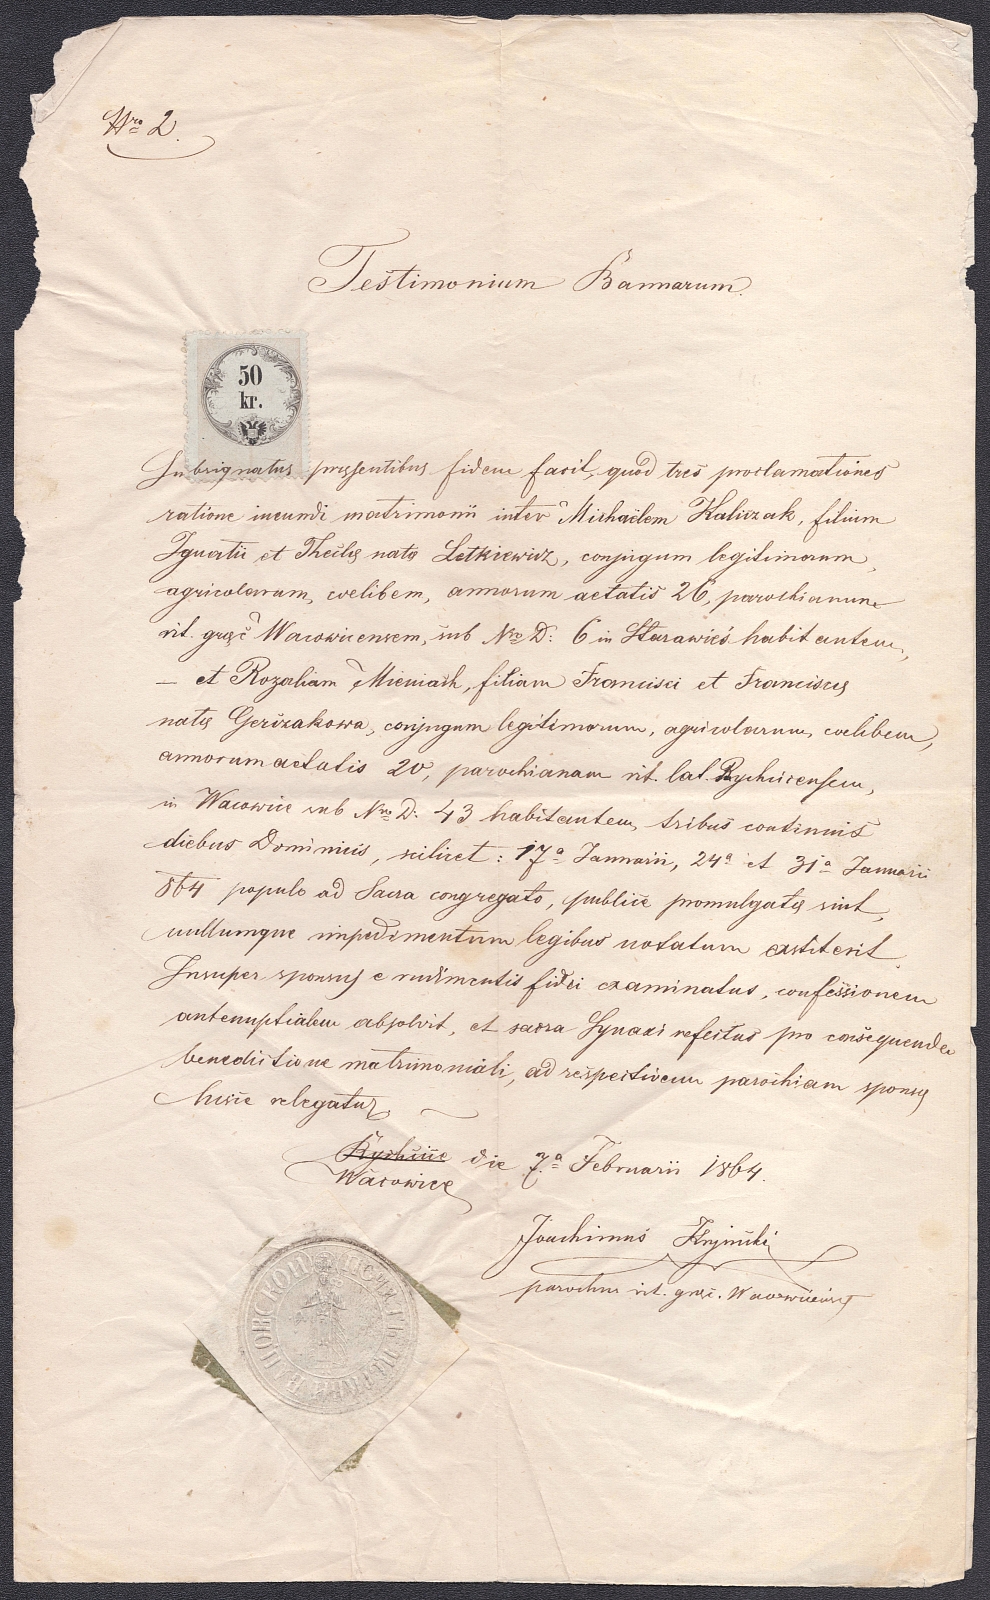 Nro 2.
Testimonium Bannorum.
50
kr.
Subsignatus presentibus fidem facit, quod tres proclamationes
ratione ineundi matrimonii inter Michaelem Kaliczak, filium
Ignatii et Theclę natę Letkiewicz, conjugum legitimorum,
agricolarum, coelibem, annorum aetatis 26, parochianum
rit. gręc Wacowicensem, sub Nro D: 6 in Starawieś habitantem,
— et Rozaliam Mieniach, filiam Francisci et Franciscę
natę Gerczakowa, conjugum legitimorum, agricolarum, coelibem,
annorum aetatis 20, parochianam rit. lat. Rychcicensem,
in Wacowice sub Nro D: 43 habitantem, tribus continuis
diebus Dominicis, scilicet: 17ª Januarii, 24ª et 31ª Januarii
864 populo ad Sacra congregato, publice promulgatę sint,
nullumque impedimentum legibus notatum exstiterit.
Insuper sponsus e rudimentis fidei examinatus, confessionem
antenuptialem absolvit, et sacra Synaxi refectus pro consequenda
benedictione matrimoniali, ad respectivam parochiam sponsę
hisce relegatur.
Rychcice die 7ª Februarii 1864.
Wacowice
Joachimus
parochus rit. gręc. Wacowicensis